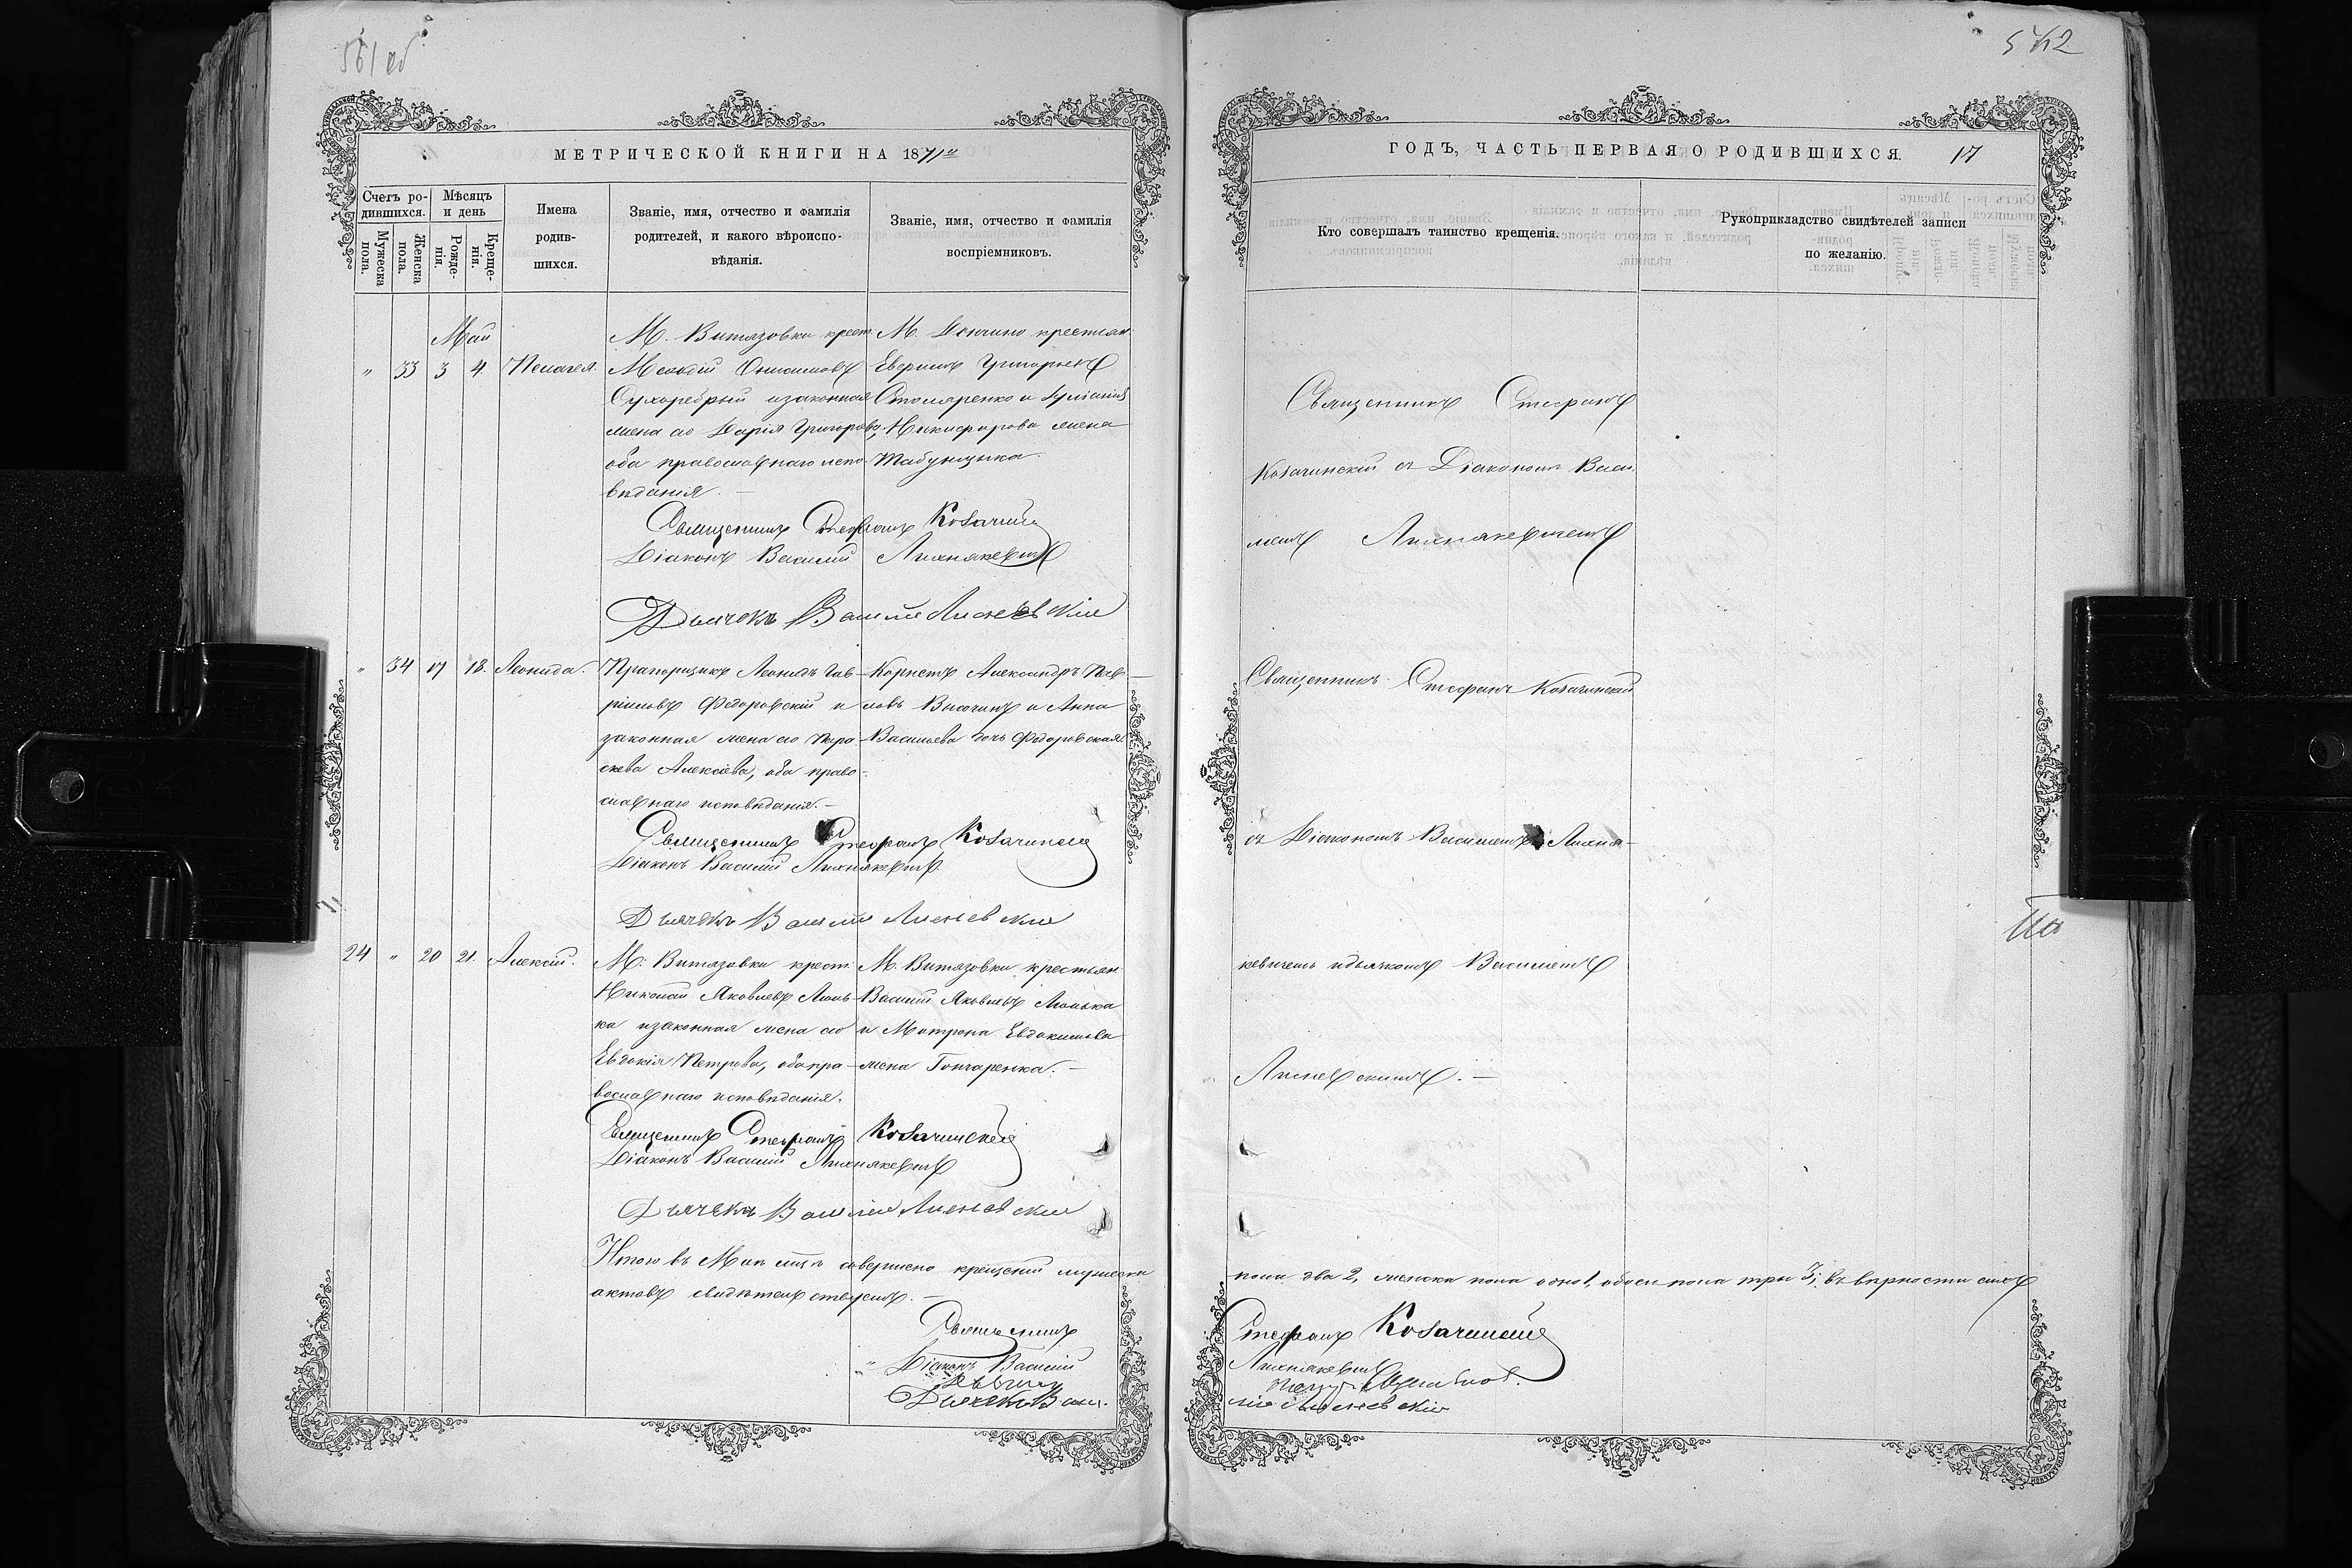 561 об
МЕТРИЧЕСКОЙ КНИГИ НА 1871й
Счетъ родившихся.
Мѣсяцъ и день
Мужеска пола.
Женска пола.
Рожденія.
Крещенія.
Имена родившихся.
Званіе, имя, отчество и фамилія родителей, и какого вѣроисповѣданія.
Званіе, имя, отчество и фамилія воспріемниковъ.
Май
" 33 3 4. Пелагея.
М. Витязовки крест.
Меѳодій Онисимовъ
Сухоребрый и законная
жена его Дарія Григорова,
оба православнаго испо-
вѣданія. —
М. крестьян.
Григорьевъ
Столяренко и
Никифорова жена
Табунщика.
Священникъ Стефанъ Козачинскій
Діаконъ Василій Лихнякевичъ
Дьячекъ Василій Лисневскій
" 34 17 18. Леонида.
Прапорщикъ Леонидъ Гав-
ріиловъ Федоровскій и
законная жена его Пара-
скева Алексѣева, оба право-
славнаго исповѣданія. —
Корнетъ Александръ Пав-
ловъ и Анна
Васильева дочь Федоровская
Священникъ Стефанъ Козачинскій
Діаконъ Василій Лихнякевичъ.
Дьячекъ Василій Лисневскій
24 " 20 21. Алексій.
М. Витязовки крест.
Николай Яковлевъ Люль-
ка и законная жена его
Евдокія Петрова, оба пра-
вославнаго исповѣданія.
М. Витязовки крестьян.
Василій Яковлевъ Люлька
и Матрона Евдокимова
жена Гончаренка. —
Священникъ Стефанъ Козачинскій
Діаконъ Василій Лихнякевичъ
Дьячекъ Василій Лисневскій
Итого въ Маѣ мцѣ совершено крещеній мужеска
актовъ свидѣтельствуемъ. —
Священникъ
Діаконъ Василій
Дьячекъ Васи-
562
ГОДЪ, ЧАСТЬ ПЕРВАЯ О РОДИВШИХСЯ. 17
Кто совершалъ таинство крещенія.
Рукоприкладство свидѣтелей записи по желанію.
Священникъ Стефанъ
Козачинскій съ Діакономъ Васи-
ліемъ Лихнякевичемъ
Священникъ Стефанъ Козачинскій
съ Діакономъ Василіемъ Лихня-
кевичемъ и дьячкомъ Василіемъ
Лисневскимъ. —
пола два 2, женска пола одно 1, обоего пола три 3; въ вѣрности сихъ
Стефанъ Козачинскій
Лихнякевичъ
лій Лисневскій